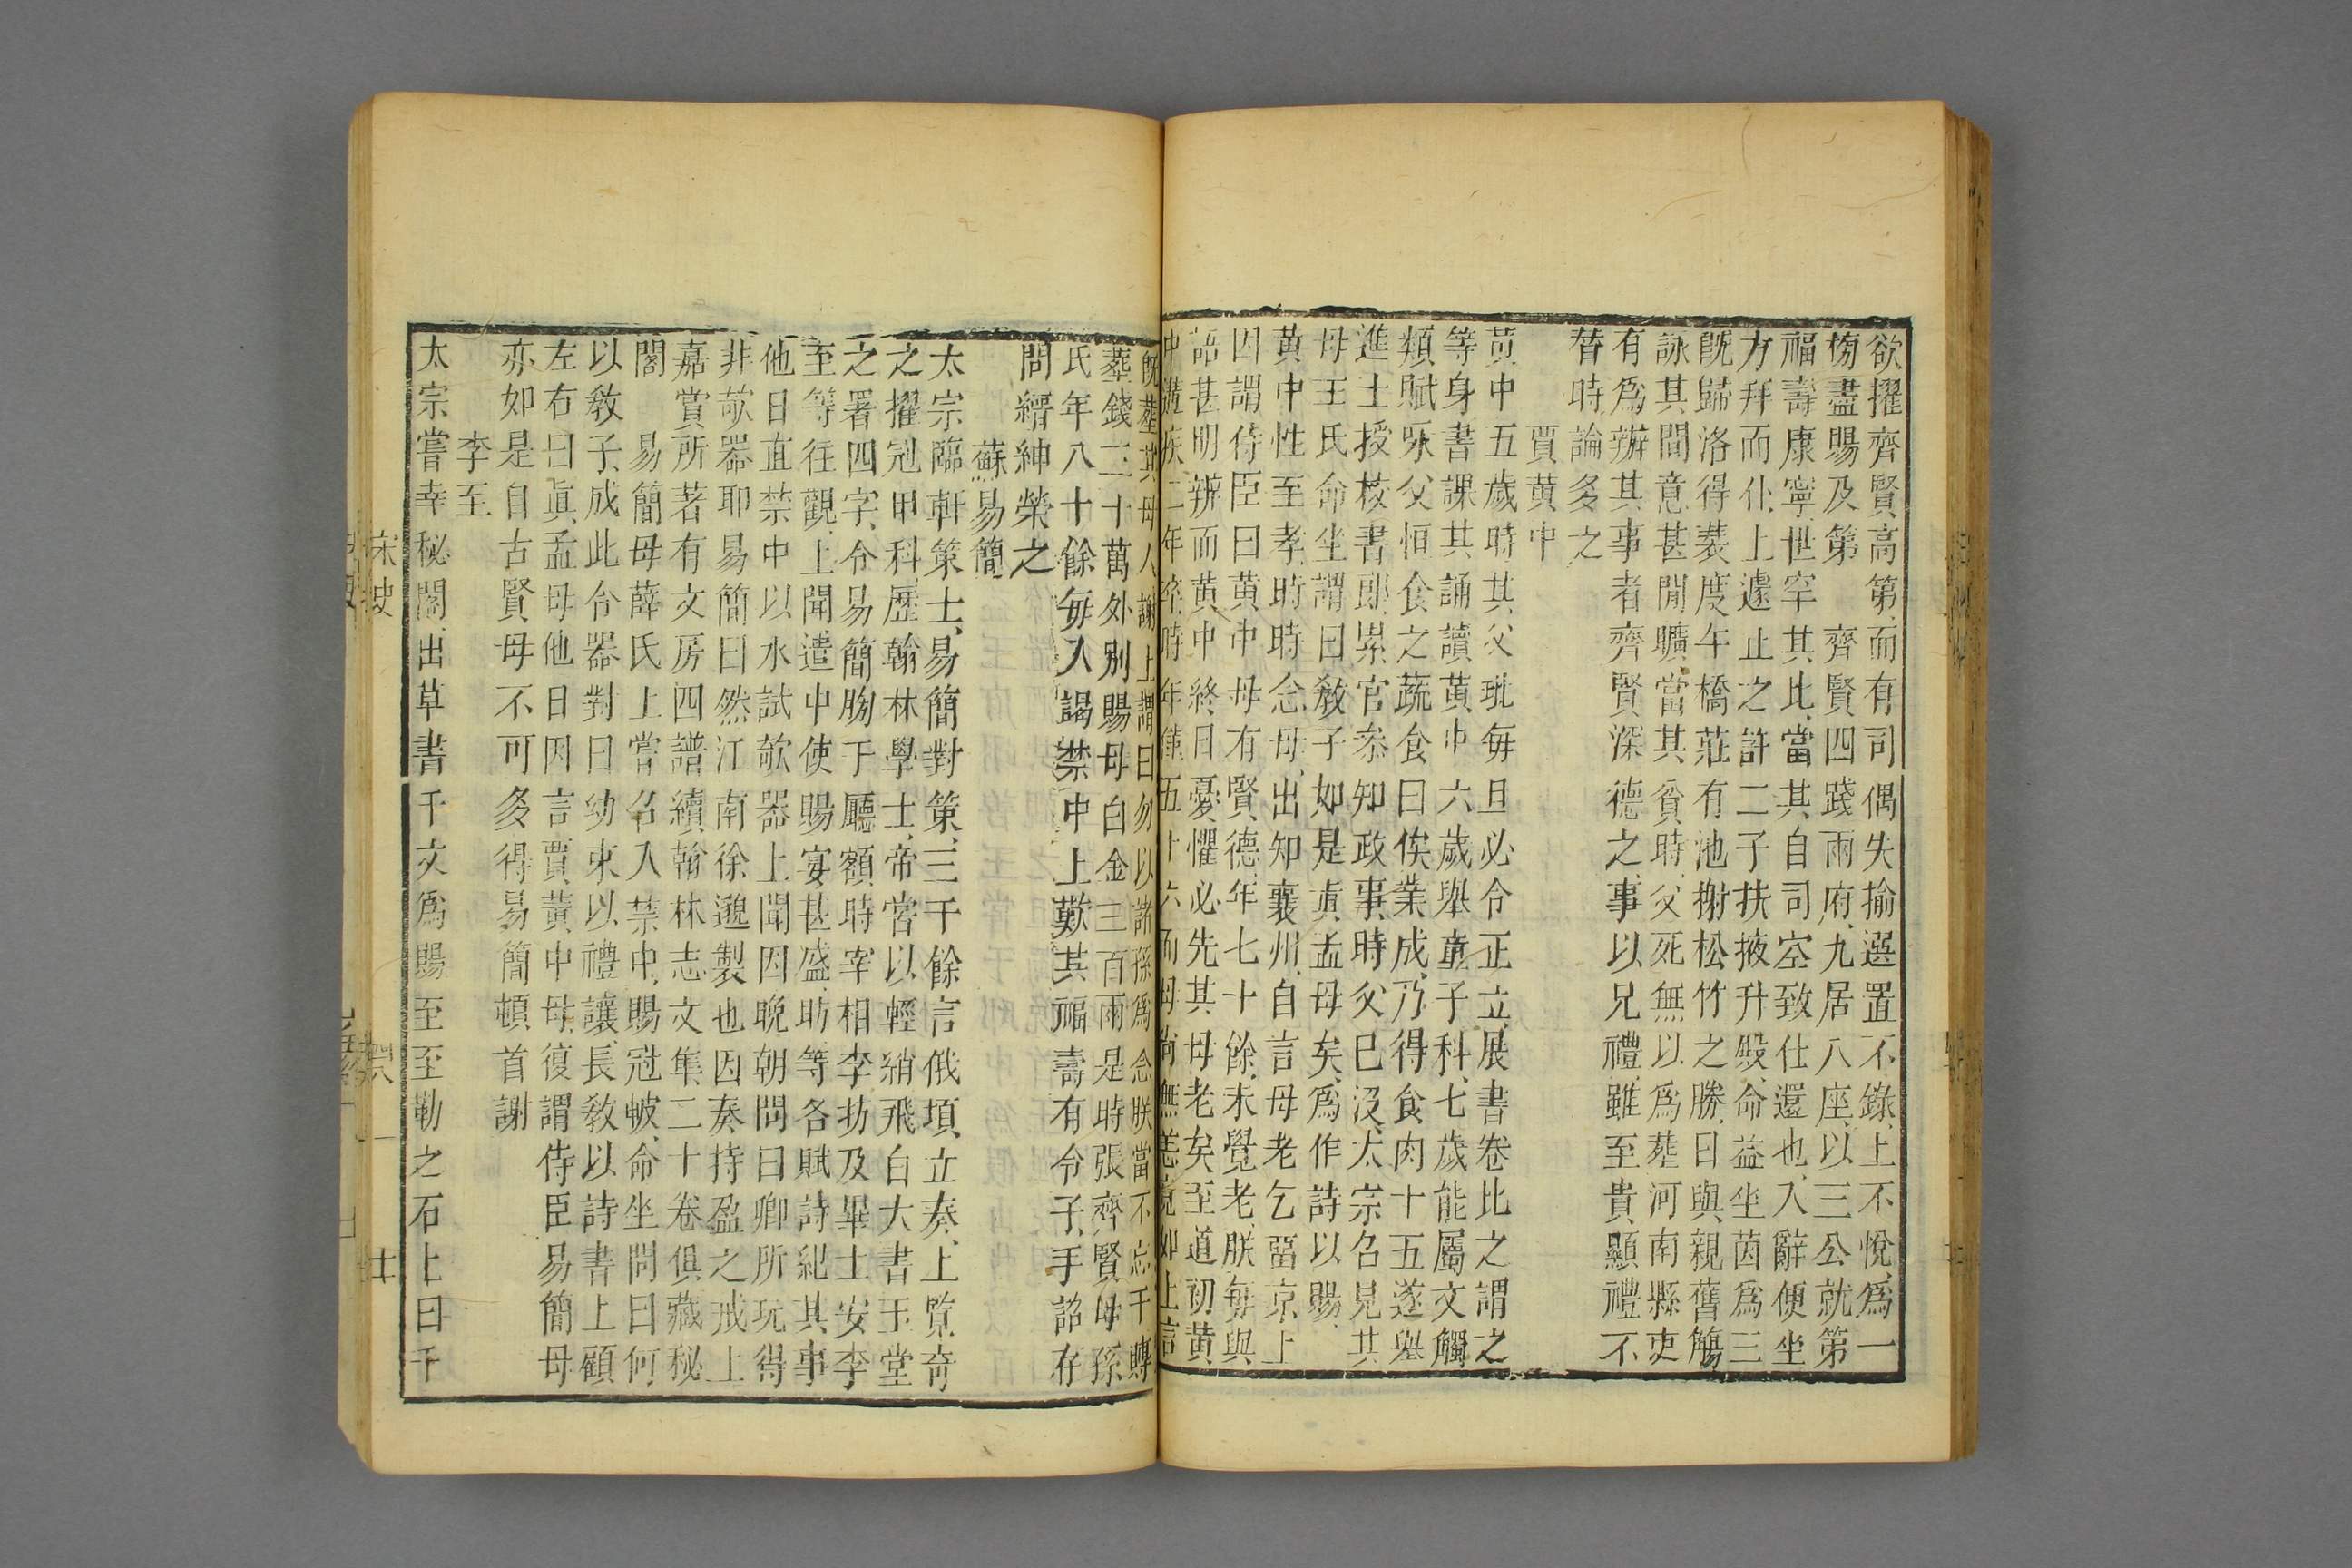 欲擢齊賢高第、而有司偶失掄選置不錄、上不悅、爲一
榜盡賜及第　齊賢四踐兩府、九居八座、以三公就第
福壽康寧、世罕其比、當其自司空致仕還也、入辭便坐
方拜而仆、上遽止之、許二子扶掖升殿、命益坐茵爲三
旣歸洛得裴度午橋莊有池榭松竹之勝、日與親舊觴
詠其間意甚閒曠、當其貧時、父死無以爲葬、河南縣吏
有爲辦其事者、齊賢深德之、事以兄禮、雖至貴顯禮不
替時論多之
賈黃中
黃中五歲時其父玭每旦必令正立、展書卷比之謂之
等身書、課其誦讀黃中六歲舉童子科、七歲能屬文觸
類賦咏父恒食之蔬食曰俟業成、乃得食肉十五遂舉
進士授校書郎、累官叅知政事、時父已沒、太宗召見其
母王氏命坐謂曰教子如是眞孟母矣、爲作詩以賜、
黃中性至孝、時時念母、出知襄州、自言母老乞留京上
因謂侍臣曰黃中母有賢德、年七十餘、未覺老、朕每與
語甚明辨而黃中終日憂懼必先其母老矣至道初黃
中遘疾二年卒時年僅五十六而母尚無恙竟如上言
旣葬其母入謝上謂曰勿以諸孫爲念朕當不忘千轉
葬錢三十萬外別賜母白金三百兩是時張齊賢母孫
氏年八十餘每入謁禁中上歎其福壽有令子、手詔存
問縉紳榮之
蘇易簡
太宗臨軒策士、易簡對策、三千餘言俄頃立奏、上覽奇
之擢冠甲科、歷翰林學士、帝嘗以輕綃飛白大書玉堂
之署四字、令易簡牓于廳額時宰相李昉及畢士安李
至等往觀、上聞、遣中使賜宴甚盛、助等各賦詩紀其事
他日直禁中以水試欹器上聞因晚朝問曰卿所玩得
非欹器耶易簡曰然江南徐邈製也因奏持盈之戒上
嘉賞所著有文房四譜續翰林志文集二十卷俱藏秘
閣　易簡母薛氏上嘗召入禁中、賜冠帔、命坐問曰何
以敎子成此令器對曰幼束以禮讓、長敎以詩書上顧
左右曰眞孟母他日因言賈黃中母、復謂侍臣易簡母
亦如是自古賢母不可多得易簡頓首謝
李至
太宗嘗幸秘閣、出草書千文爲賜至至勒之石上曰千
宋史